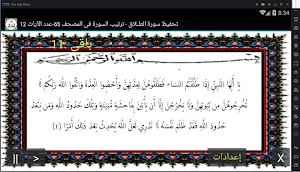 8:34
تحفيظ سورة الطلاق - ترتيب السورة فى المصحف 65-عدد الآيات 12
باقي 11
بسم الله الرحمن الرحيم
يَا أَيُّهَا النَّبِيُّ إِذَا طَلَّقْتُمُ النِّسَاءَ فَطَلِّقُوهُنَّ لِعِدَّتِهِنَّ وَأَحْصُوا الْعِدَّةَ وَاتَّقُوا اللَّهَ رَبَّكُمْ لَا
تُخْرِجُوهُنَّ مِنْ بُيُوتِهِنَّ وَلَا يَخْرُجْنَ إِلَّا أَنْ يَأْتِينَ بِفَاحِشَةٍ مُبَيِّنَةٍ وَتِلْكَ حُدُودُ اللَّهِ وَمَنْ يَتَعَدَّ
حُدُودَ اللَّهِ فَقَدْ ظَلَمَ نَفْسَهُ لَا تَدْرِي لَعَلَّ اللَّهَ يُحْدِثُ بَعْدَ ذَلِكَ أَمْرًا (1)
|| > إعدادات X